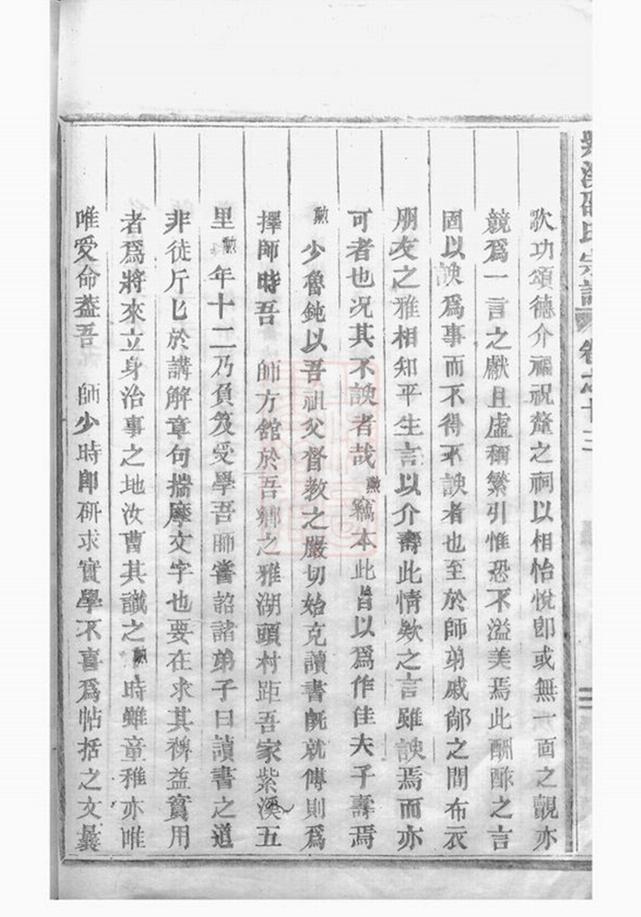 溪邵氏宗譜 卷之十三
歌功頌德介福祝釐之祠以相怡悅卽或無一面之覿亦
競爲一言之獻且虛稱繁引惟恐不溢美焉此酬酢之言
固以諛爲事而不得不諛者也至於師弟戚鄰之間布衣
朋友之雅相知平生言以介壽此情欵之言雖諛焉而亦
可者也况其不諛者哉勲竊本此旨以爲作佳夫子壽焉
勲少魯鈍以吾祖父督教之嚴切始克讀書旣就傅則爲
擇師時吾 師方館於吾鄕之雅湖頭村距吾家紫溪五
里勲年十二乃負笈受學吾師嘗詔諸弟子曰讀書之道
非徒斤匕於講解章句揣摩文字也要在求其裨益實用
者爲將來立身治事之地汝曹其識之勲時雖童稚亦唯
唯爱命葢吾 師少時卽研求實學不喜爲帖括之文曩